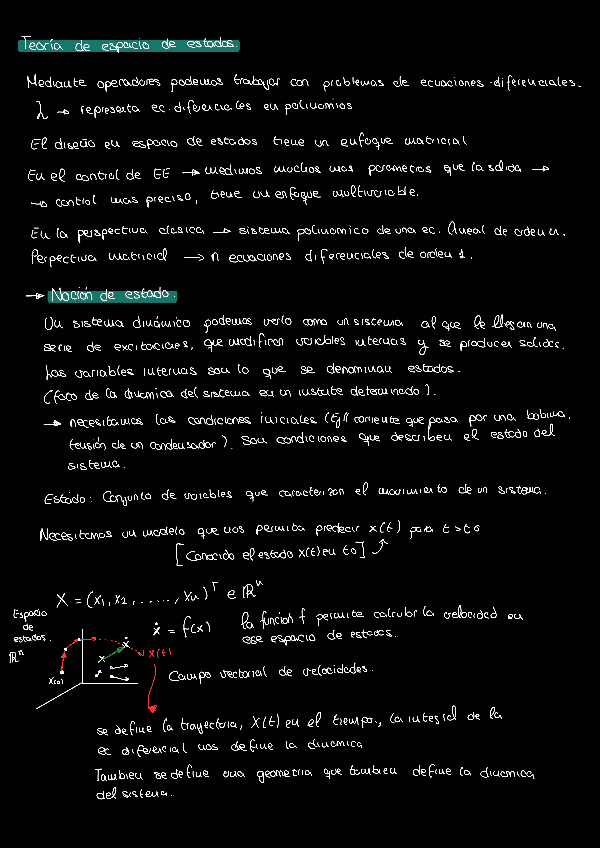 Teoría de espacio de estados.
Mediante operadores podemos trabajar con problemas de ecuaciones diferenciales.
λ → representa ec. diferenciales en polinomios
El diseño en espacio de estados tiene un enfoque matricial
En el control de EE → medimos muchos mas parametros que la salida →
→ control mas preciso, tiene un enfoque multivariable.
En la perspectiva clasica → sistema polinomico de una ec. lineal de orden n.
Perpectiva matricial → n ecuaciones diferenciales de orden 1.
→ Noción de estado.
Un sistema dinámico podemos verlo como un sistema al que le llegan una
serie de excitaciones, que modifican variables internas y se producen salidas.
Las variables internas son lo que se denominan estados.
(foto de la dinamica del sistema en un instante determinado).
→ necesitamos las condiciones iniciales (Ej// corriente que pasa por una bobina,
tensión de un condensador). Son condiciones que describen el estado del
sistema.
Estado: Conjunto de variables que caracterizan el movimiento de un sistema.
Necesitamos un modelo que nos permita predecir x(t) para t>t0
[Conocido el estado x(t) en t0]
X = (x1, x2, ....., xn)^T e ℝ^n
Espacio
de
estados.
ℝ^n
x(0)
x
ẋ
x(t)
ẋ = f(x)
la funcion f permite calcular la velocidad en
ese espacio de estados.
Campo vectorial de velocidades.
se define la trayectoria, X(t) en el tiempo, la integral de la
ec diferencial nos define la dinamica
Tambien se define una geometria que tambien define la dinamica
del sistema.